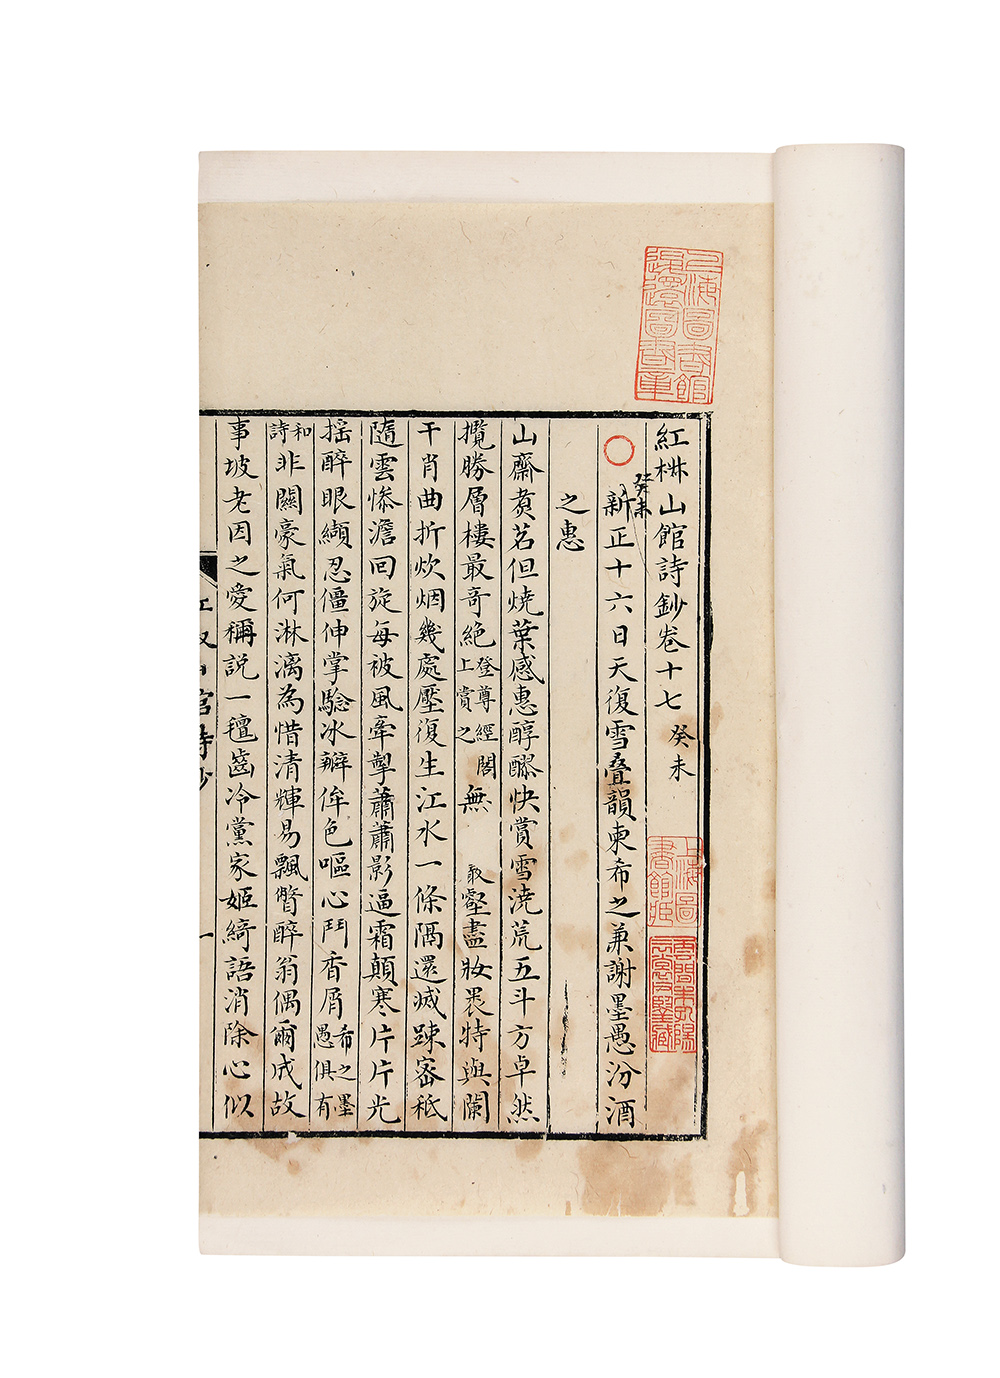 紅椒山館詩鈔卷十七 癸未
癸未
新正十六日天復雪叠韻柬希之兼謝墨愚汾酒
之惠
山齋煑茗但燒葉感惠醇醪快賞雪澆荒五斗方卓然
攬勝層樓最奇絶登尊經閣上賞之無敢壑盡妝裘特與闌
干肖曲折炊烟幾處壓復生江水一條隅還滅踈宻秪
隨雲惨澹回旋每被風牽掣蕭蕭影逼霜顛寒片片光
揺醉眼纈忍僵伸掌驗冰瓣侔色嘔心鬥香屑希之墨愚俱有
和詩非關豪氣何淋漓為惜清輝易飄瞥醉翁偶爾成故
事坡老因之愛稱説一氊齒冷黨家姬綺語消除心似
山館詩鈔
一
上海圖書館
退還圖書章
上海圖
書館藏